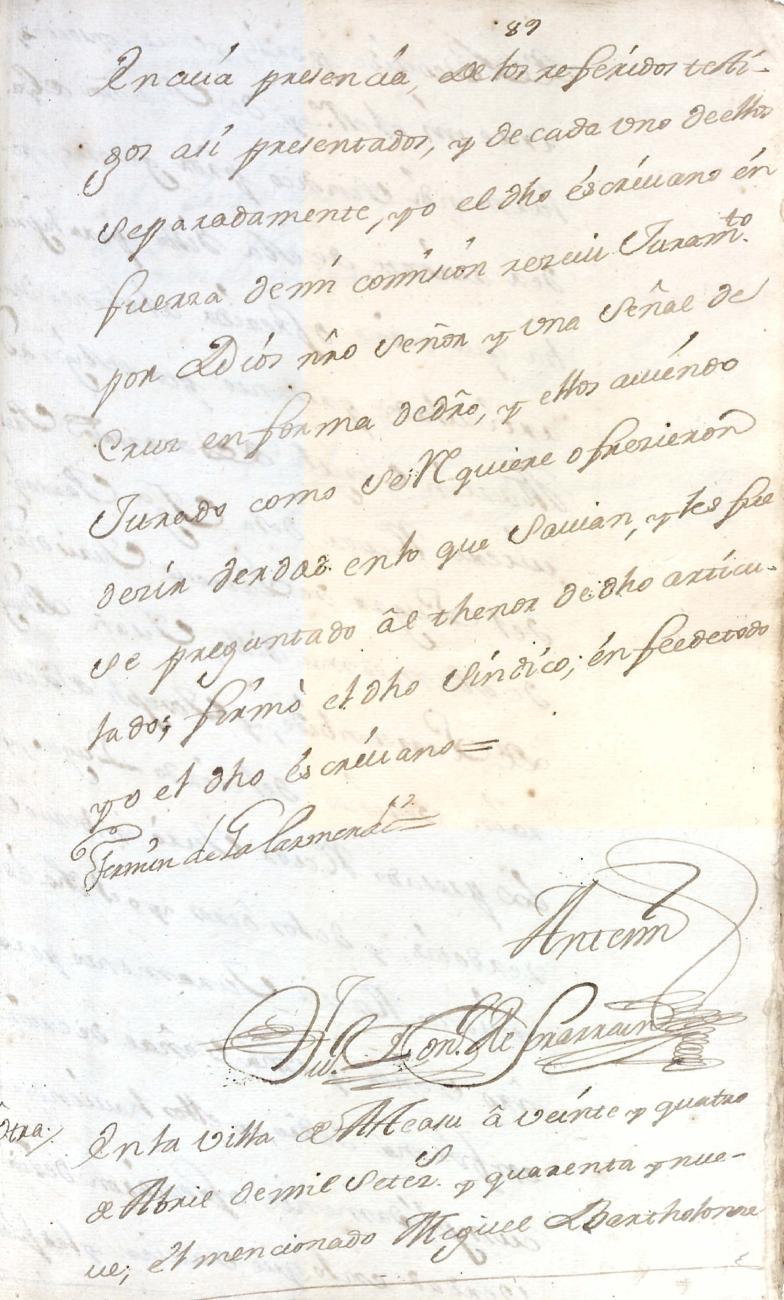 89
En cuia presencia, de los referidos testi-
gos asi presentados, y de cada uno de ellos
Separadamente, yo el dho escriuano en
fuerza de mi comision reziui Juramto.
por Dios nro Señor y una Señal de
Cruz en forma de dro, y ellos auiendo
Jurado como se Requiere ofrezieron
dezir Verdad en lo que Sauian, y les fue
se preguntado al thenor de dho articu-
lado; firmò el dho Sindico, en fee de todo
yo el dho escriuano=
Fermin de la Carmendi
Antemi
Lon. de
Otra /
En la villa de Aleasu à veinte y quatro
de Abril de mil Seters. y quarenta y nue-
ue, el mencionado Miguel Bartholome